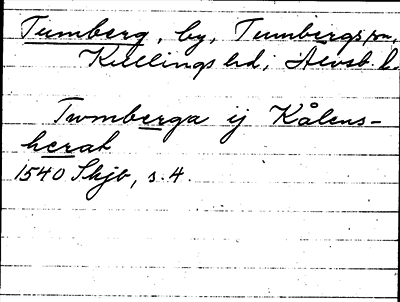 Tumberg, by, Tumbergs sn,
Kullings hd; Älvsb. l.
Twmberga ij Kålens-
herat
1540 Skjb, s. 4.